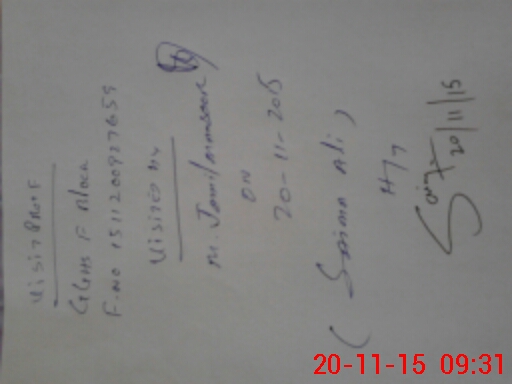 Visit Proof
GGHS F Block
F.NO 151120092765
Visited by
M. Jamil
ON
20-11-2015
( Saima Ali )
20/11/15
20-11-15 09:31